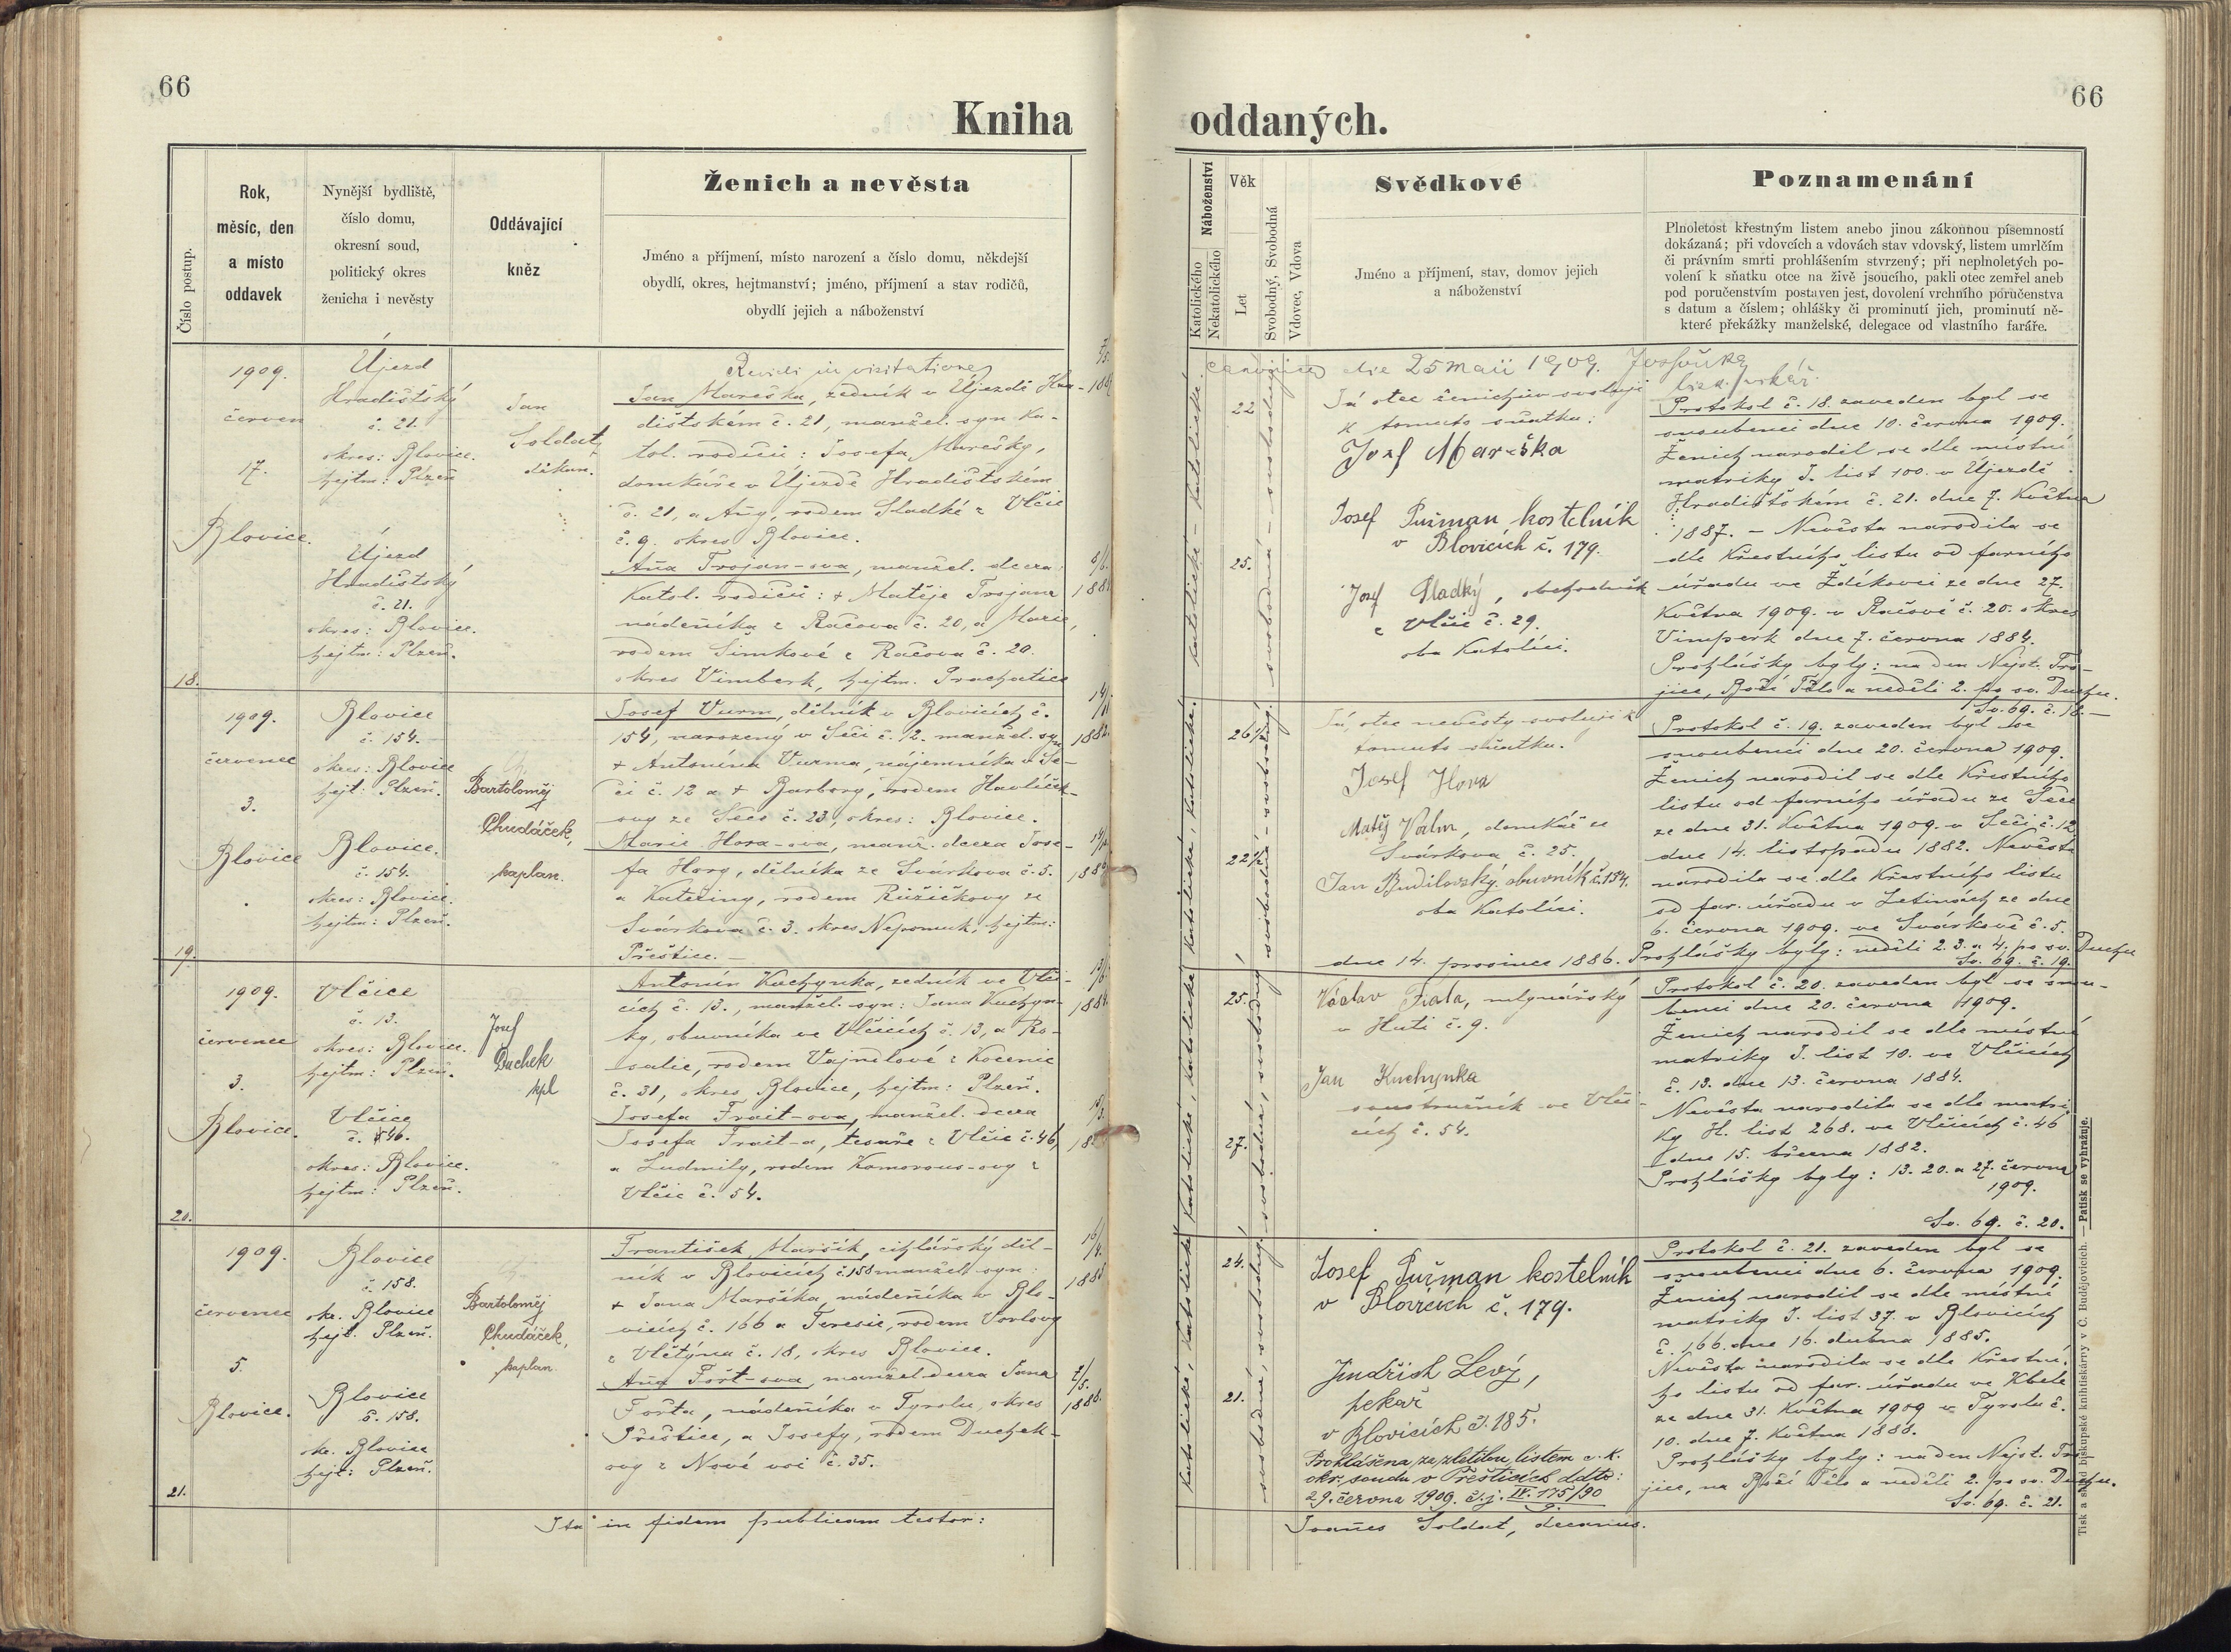 66
Kniha
Číslo postup.
Rok,
měsíc, den
a místo
oddavek
Nynější bydliště,
číslo domu,
okresní soud,
politický okres
ženicha i nevěsty
Oddávající
kněz
Ženich a nevěsta
Jméno a příjmení, místo narození a číslo domu, někdejší
obydlí, okres, hejtmanství; jméno, příjmení a stav rodičů,
obydlí jejich a náboženství
Revidi in visitatione
1909.
červen
17.
Blovice.
Újezd
Hradištský
č. 21.
okres: Blovice.
hejtm: Plzeň
Újezd
Hradištský
č. 21.
okres: Blovice.
hejtm: Plzeň.
18.
Jan
Soldat,
děkan.
Jan Mareška, zedník v Újezdě Hra-
dištském č. 21, manžel. syn ka-
tol. rodičů: Josefa Marešky,
domkáře v Újezdě Hradištském
č. 21, a Anny, rodem Sladké z Vlčic
č. 9. okres Blovice.
Anna Trojan-ova, manžel. dcera
katol. rodičů: + Matěje Trojana
nádeníka z Račova č. 20, a Marie,
rodem Šimkové z Račova č. 20.
okres Vimberk, hejtm. Prachatice
1909.
červenec
3.
Blovice
Blovice
č. 154.
okres: Blovice
hejt: Plzeň.
Blovice.
č. 154.
okres: Blovice.
hejtm: Plzeň.
19.
Bartoloměj
Chudáček,
kaplan.
Josef Vurm, dělník v Blovicích č.
154, narozený v Seči č. 12. manžel. syn
+ Antonína Vurma, nájemníka v Se-
či č. 12 a + Barbory, rodem Havlíčk-
ovy ze Seče č. 23, okres: Blovice.
Marie Hora-ova, manž. dcera Jose-
fa Hory, dělníka ze Svárkova č. 5.
a Kateřiny, rodem Růžičkovy ze
Svárkova č. 3. okres Nepomuk, hejtm:
Přeštice. —
14/11
1882.
1909.
červenec
3.
Blovice.
Vlčice
č. 13.
okres: Blovice.
hejtm: Plzeň.
Vlčice
č. 46.
okres: Blovice.
hejtm: Plzeň.
20.
Josef
Duchek
kpl
Antonín Kuchynka, zedník ve Vlči-
cích č. 13., manžel. syn: Jana Kuchyn-
ky, obuvníka ve Vlčicích č. 13, a Ro-
salie, rodem Vajndlové z Kocenic
č. 31, okres Blovice, hejtm: Plzeň.
Josefa Frait-ova, manžel. dcera
Josefa Frait-a, tesaře z Vlčic č. 46,
a Ludmily, rodem Komorous-ovy z
Vlčic č. 54.
13/6
1884.
1909.
červenec
5.
Blovice.
Blovice
č. 158.
okr. Blovice
hejt. Plzeň.
Blovice
č. 158.
okr. Blovice
hejt: Plzeň.
21.
Bartoloměj
Chudáček,
kaplan.
František Maršík, cihlářský děl-
ník v Blovicích č. 158 manžel. syn:
+ Jana Maršíka, nádeníka v Blo-
vicích č. 166 a Teresie, rodem Vorlovy
z Vlčtýna č. 18, okres Blovice.
Anna Fořt-ova, manžel. dcera Jana
Fořta, nádeníka v Tyrolu, okres
Přeštice, a Josefy, rodem Duchek-
ovy z Nové vsi č. 35.
16/4.
7/5.
1888.
Ita in fidem publicam testor:
66
oddaných.
Náboženství
Katolického
Nekatolického
Věk
Let
Svobodný, Svobodná
Vdovec, Vdova
Svědkové
Jméno a příjmení, stav, domov jejich
a náboženství
Poznamenání
Plnoletost křestným listem anebo jinou zákonnou písemností
dokázaná; při vdovcích a vdovách stav vdovský, listem umrlčím
či právním smrti prohlášením stvrzený; při neplnoletých po-
volení k sňatku otce na živě jsoucího, pakli otec zemřel aneb
pod poručenstvím postaven jest, dovolení vrchního poručenstva
s datum a číslem; ohlášky či prominutí jich, prominutí ně-
které překážky manželské, delegace od vlastního faráře.
die 25 maii 1909.
22
25.
Já otec ženichův svoluji
k tomuto sňatku:
Josef Mareška
Josef Pužman kostelník
v Blovicích č. 179.
Josef Sladký, obchodník
z Vlčic č. 29.
oba katolíci.
Protokol č. 18. zaveden byl se
snoubenci dne 10. června 1909.
Ženich narodil se dle místní
matriky I. list 100. v Újezdě
Hradištském č. 21. dne 7. května
1887. — Nevěsta narodila se
dle křestního listu od farního
úřadu ve Ždíkovci ze dne 27.
května 1909. v Račově č. 20. okres
Vimperk dne 7. června 1884.
Prohlášky byly: na den Nejsv. Tro-
jice, Boží Tělo a neděli 2. po sv. Duchu.
Sv. 69. č. 18. —
26½
22½
Já, otec nevěsty svoluji k
tomuto sňatku.
Josef Hora
Matěj Valm, domkář ze
Svárkova č. 25.
Jan Budilovský obuvník č. 154.
oba katolíci.
Protokol č. 19. zaveden byl se
snoubenci dne 20. června 1909.
Ženich narodil se dle křestního
listu od farního úřadu ze Seče
ze dne 31. května 1909. v Seči č. 12
dne 14. listopadu 1882. Nevěsta
narodila se dle křestního listu
od far. úřadu v Letinách ze dne
6. června 1909. ve Svárkově č. 5.
dne 14. prosince 1886. Prohlášky byly: neděli 2. 3. a 4. po sv. Duchu
Sv. 69. č. 19.
25.
27.
Václav Fiala, mlynářský
v Huti č. 9.
Jan Kuchynka
soustružník ve Vlči-
cích č. 54.
Protokol č. 20. zaveden byl se snou-
benci dne 20. června 1909.
Ženich narodil se dle místní
matriky I. list 10. ve Vlčicích
č. 13. dne 13. června 1884.
Nevěsta narodila se dle matri-
ky II. list 268. ve Vlčicích č. 46
dne 15. března 1882.
Prohlášky byly: 13. 20. a 27. června
1909.
Sv. 69. č. 20.
24.
21.
Josef Pužman kostelník
v Blovicích č. 179.
Jindřich Levý,
pekař
v Blovicích č. 185.
Prohlášena za zletilou listem c. k.
okr. soudu v Přešticích ddto:
29. června 1909. č. j. IV. 175/90
9.
Protokol č. 21. zaveden byl se
snoubenci dne 6. června 1909.
Ženich narodil se dle místní
matriky I. list 37. v Blovicích
č. 166. dne 16. dubna 1885.
Nevěsta narodila se dle křestní-
ho listu od far. úřadu ve Kbele
ze dne 31. května 1909 v Tyrolu č.
10. dne 7. května 1888.
Prohlášky byly: na den Nejst. Tro-
jice, na Boží Tělo a neděli 2. po sv. Duchu.
Sv. 69. č. 21.
Joannes Soldat, decanus.
Tisk a sklad biskupské knihtiskárny v Č. Budějovicích. — Patisk se vyhražuje.